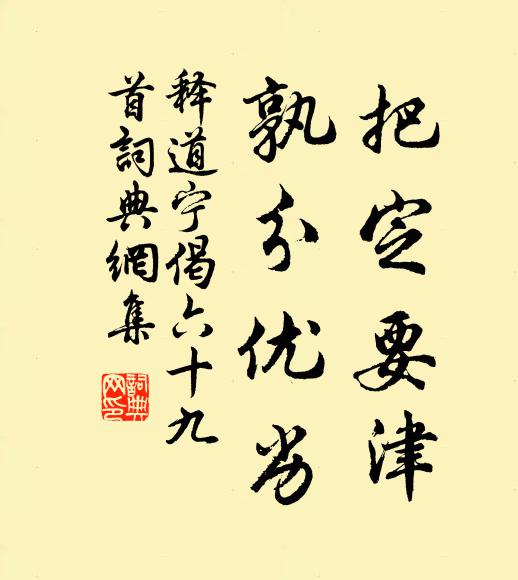 把定要津
孰分优劣
释道宁偈六十九
首詞典網集
詞典
网印